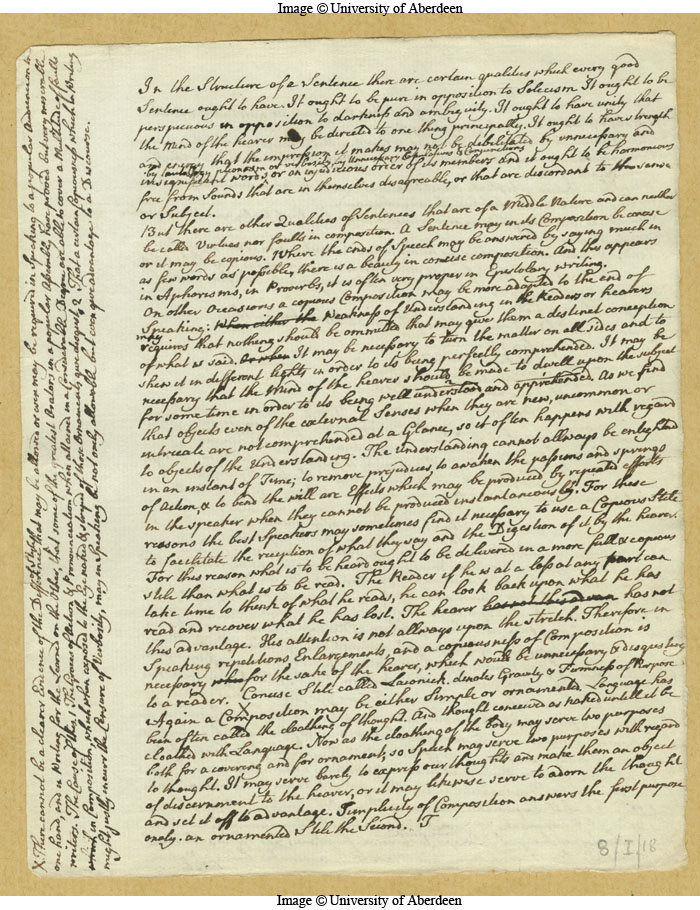 Image © University of Aberdeen
In the Structure of a Sentence there are certain qualities which every good
Sentence ought to have. It ought to be pure in opposition to Solecism It ought to be
perspicuous in opposition to darkness and ambiguity. It ought to have unity that
the Mind of the hearer may be directed to one thing principally. It ought to have strength
and energy that the impression it makes may not be debilitated by unnecessary and
by tautology
insignificant words, or an injudicious order of its members and it ought to be harmonious
free from Sounds that are in themselves disagreable, or that are discordant to the sense
or Subject.
But there are other Qualities of Sentences that are of a Middle Nature and can neither
be called Virtues nor faults in composition. A Sentence may in its Composition be concise
or it may be copious. Where the ends of Speech may be answered by saying much in
as few words as possible, there is a beauty in concise composition. And this appears
in Aphorisms, in Proverbs, it is often very proper in Epistolary Writing.
On other Occasions a copious Composition may be more adapted to the end of
Speaking: When either the Weakness of Understanding in the Readers or hearers
may
requires that nothing should be ommitted that may give them a distinct conception
of what is said. Or when It may be necessary to turn the matter on all sides and to
shew it in different lights in order to its being perfectly comprehended. It may be
necessary that the Mind of the hearer should be made to dwell upon the subject
for some time in order to its being well understood and apprehended. As we find
that objects even of the external Senses when they are new, uncommon or
intricate are not comprehended at a Glance, so it often happens with regard
to objects of the Understanding. The Understanding cannot allways be enlightned
in an instant of Time; to remove prejudices, to awaken the passions and springs
of Action, & to bend the will are Effects which may be produced by repeated efforts
in the speaker when they cannot be produced instantaneously. For these
reasons the best Speakers may sometimes find it necessary to use a Copious Stile
to facilitate the reception of what they say and the Digestion of it by the hearer.
For this reason what is to be heard ought to be delivered in a more full & copious
stile than what is to be read. The Reader if he is at a loss at any part can
take time to think of what he reads, he can look back upon what he has
read and recover what he has lost. The hearer has not this advan has not
this advantage. His attention is not allways upon the stretch. Therefore in
Speaking repetitions Enlargements, and a copiousness of Composition is
necessary for the sake of the hearer, which would be unnecessary, & disgusting
to a reader. Concise Stile called Laconick, denotes Gravity & Firmness of Purpose
Again a Composition may be either Simple or ornamented. Language has
been often called the cloathing of thought. And thought conceived as naked until it be
cloathed with Language. Now as the cloathing of the body may serve two purposes
both for a covering and for ornament, so Speech may serve two purposes with regard
to thought. It may serve barely to express our thoughts and make them an object
of discernment to the hearer, or it may likewise serve to adorn the thought
and set it off to advantage. Simplicity of Composition answers the first purpose
onely. an ornamented Stile the Second. T
8/I/18
X There cannot be a clearer Evidence of the Difference that may be allowed or even may be required in Speaking to a popular Audience on
one hand, and in Writing for the learned on the other, that some of the greatest Orators in a popular Assembly, have proved but very miserable
writers. The Cause of this, 1 The Graces of Action & Pronunciation when attained in a Considerable Degree are able to cover a Multitude of faults
in Composition, which when exposed to the Eye naked & striped of those Ornaments, quite disgust, 2 That a certain Copiousness which in Writing
might justly incurr the Censure of Verbosity, may in Speaking be not only allowable but even give advantage to a Discourse.
Image © University of Aberdeen